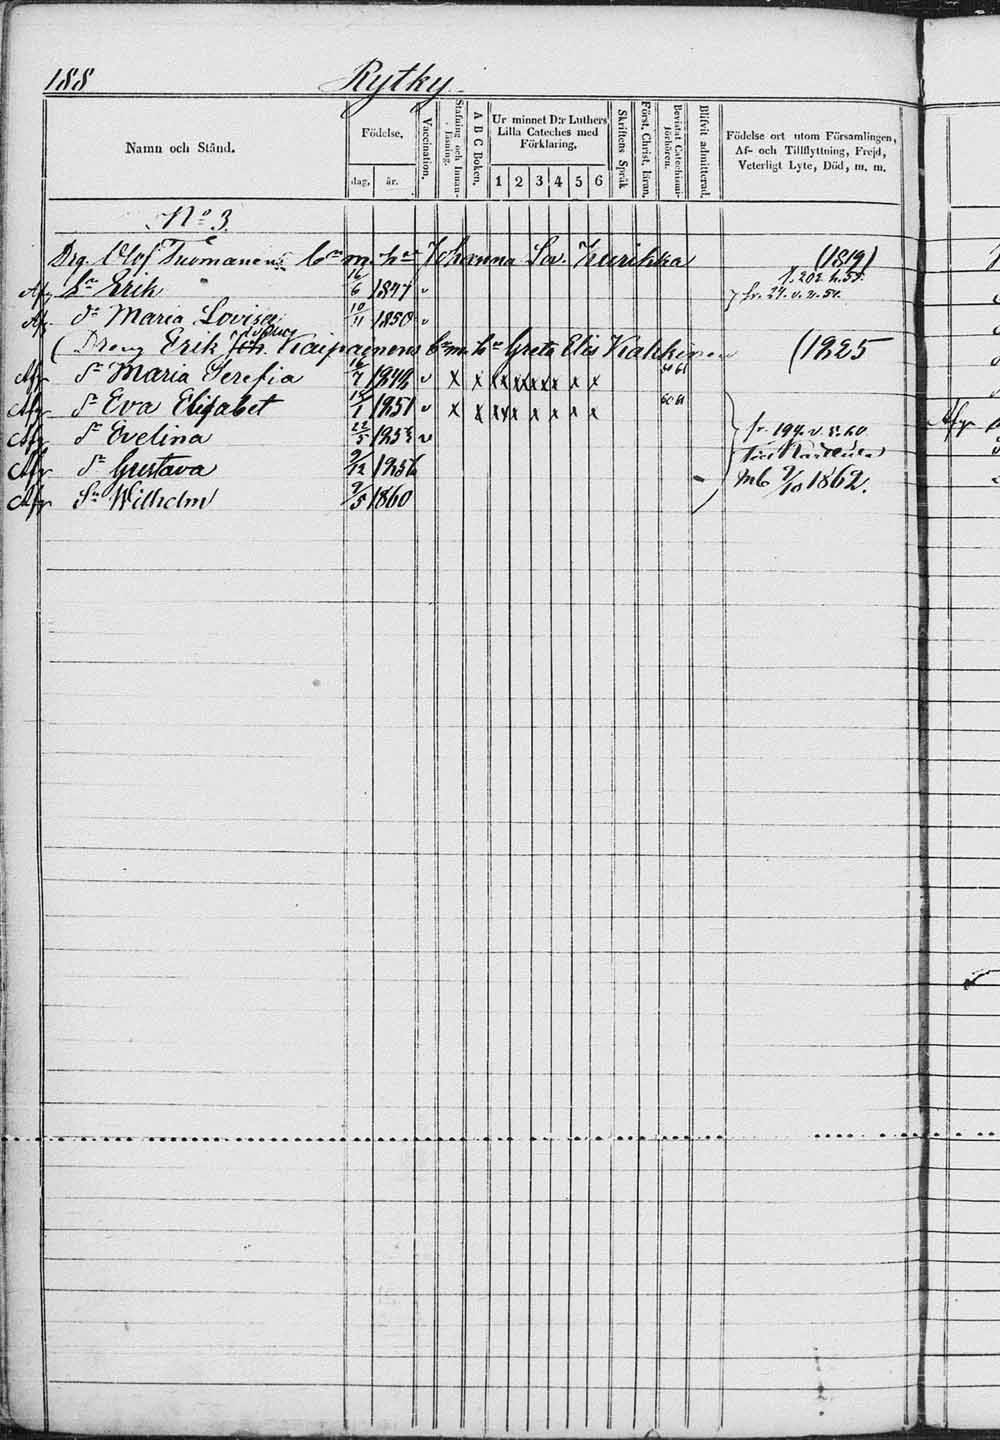 188 Rytky
Namn och Stånd.
Födelse,
dag, år.
Vaccination.
Stafning och Innan-Läsning.
A B C Boken.
Ur minnet D:r Luthers
Lilla Cateches med
Förklaring.
1 2 3 4 5 6
Skriftens Språk
Först. Christ. läran.
Bevistat Catechismi-förhören.
Blifvit admitterad.
Födelse ort utom Församlingen,
Af- och Tillflyttning, Frejd,
Veterligt Lyte, Död, m. m.
No 3
Drg. Olof Tuomanens b:a m. h:u Johanna Lov. Kurikka (1819)
Afg S:n Erik 16/6 1847 v
Afg. D:r Maria Lovisa 10/11 1850 v
(Dreng Erik Kaipainens b:a m. h:u Greta Elis Kakkinen (1825
Afg D:r Maria Serefia 16/7 1848 v x x x x x x x x 60 61
Afg D:r Eva Elisabet 1851 v x x x x x x x x 60 61
Afg D:r Evelina 22/5 1853 v fr. 194. v. s. 60
Afg D:r Gustava 9/12 1856
Afg S:n Wilhelm 9/5 1860 mb 9/10 1862.